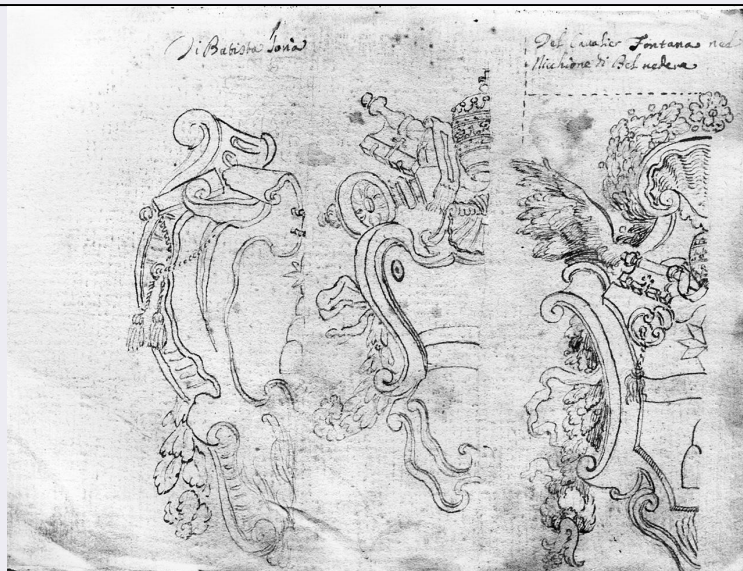 Di Batista Soria
Del Cavalier Fontana nel
Nichione di Bel vedere